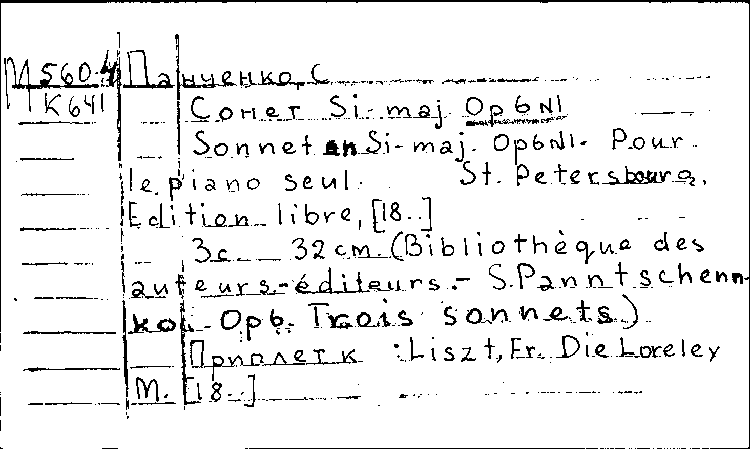 М 560-4 Панченко, С
К 641 Сонет Si-maj Op6N1
Sonnet en Si-maj. Op6N1. Pour
le piano seul. St. Petersbourg,
Edition libre, [18..]
3с. 32 cm. (Bibliothèque des
auteurs-éditeurs.- S. Panntschenn-
ko. Op6. Trois sonnets.)
Приплет к : Liszt, Fr. Die Loreley
М. [18..]